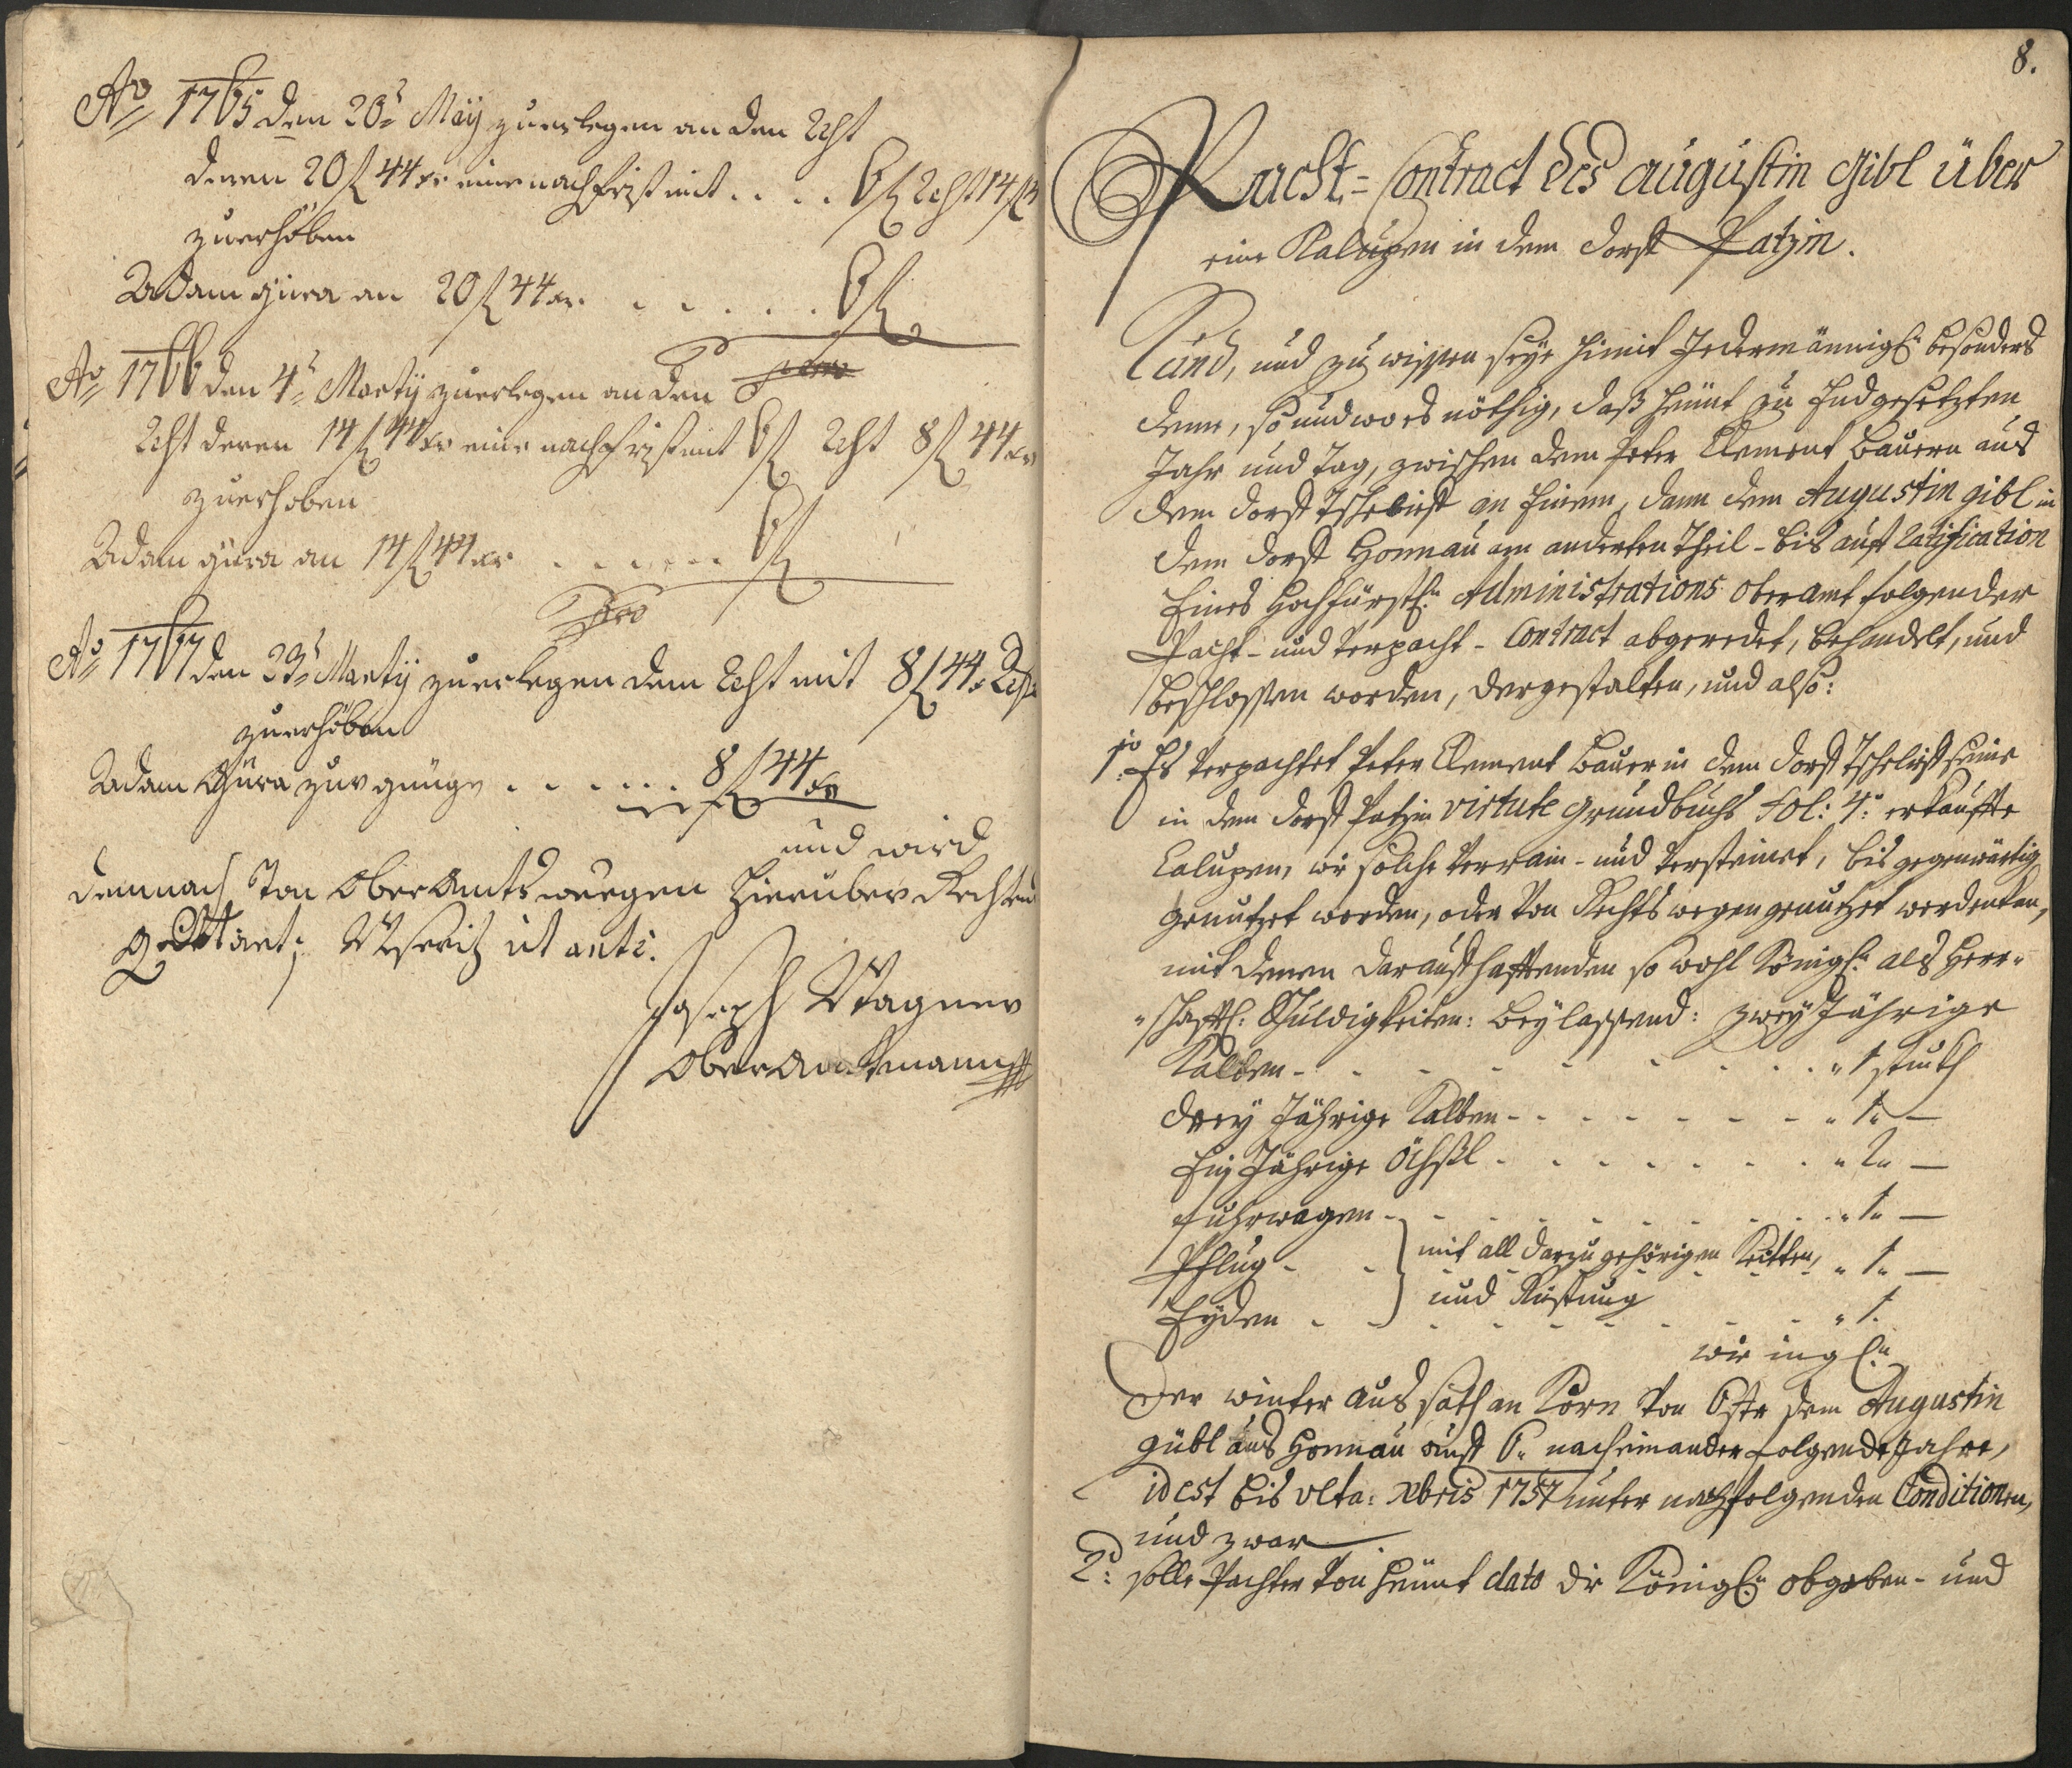 Ao 1765 den 20t May zuerlegen an den Rest
deren 20 fl 44 xr eine nachfrist mit .... 6 fl Rest 14 fl
zuerhöben
Adam Gura an 20 fl 44 xr. ...... 6 fl
Ao 1766 den 4t Martij zuerlegen an den
Rest deren 14 fl 44 xr eine nachfrist mit 6 fl Rest 8 fl 44 xr
zuerhoben
Adam gura an 14 fl 44 xr ....... 6 fl
Ao 1767 den 23t Martij zuerlegen dem Rest mit 8 fl 44 x
zuerhöben
Adam Gura zur genüge ...... 8 fl 44 xr
und wird
demnach von Oberamtswegen hierüber Rechtens
quittiret; ut ante.
Joseph Wagner
Oberambtmann
8.
Pacht-Contract des Augustin Gibl über
eine Kaluppen in dem Dorff Patzin.
Kund, und zu wissen seye hiemit Jedermännigl. besonders
denen, so und wo es nöthig, daß heünt zu Endgesetzten
Jahr und Tag, zwischen dem Peter Clement Bauern aus
dem Dorff an Einem, dann dem Augustin gibl in
dem Dorff Honnau am anderten Theil - bis auff ratification
Eines Hochfürstl. Administrations Oberamt folgender
Pacht- und Verpacht-Contract abgeredet, behandelt, und
beschlossen worden, dergestalten, und also:
1o Es verpachtet Peter Clement Bauer in dem Dorff seine
in dem Dorff Patzin virtute Grundbuchs Fol: 4: erkauffte
Calupen, wie solche verrain- und versteinet, bis gegenwärtig
genutzet worden, oder von Rechts wegen genutzet werden kan,
mit denen darauff hafftenden so wohl Königl. als Herr-
schafftl: Schuldigkeiten: beylassend: zwey Jährige
Kalben - - - - - - - 1 stückh
drey Jährige Kalben - - - - - - - 1. —
Ein Jährige Öchßl - - - - - - - 2. —
Fuhrwagen - - - - - - - 1. —
Pflug - - } mit all darzu gehörigen Ketten, 1. —
Eyden - - und Rüstung - - - - - 1.
wie ingl.
der winter aussath an Korn von Oste dem Augustin
gübl aus Honnau auff 6. nacheinander folgende Jahre,
id est bis ulta: Xbris 1757 unter nachfolgenden Conditionen,
und zwar
2do: solle Pachter von heünt dato die Königl. obgaben- und